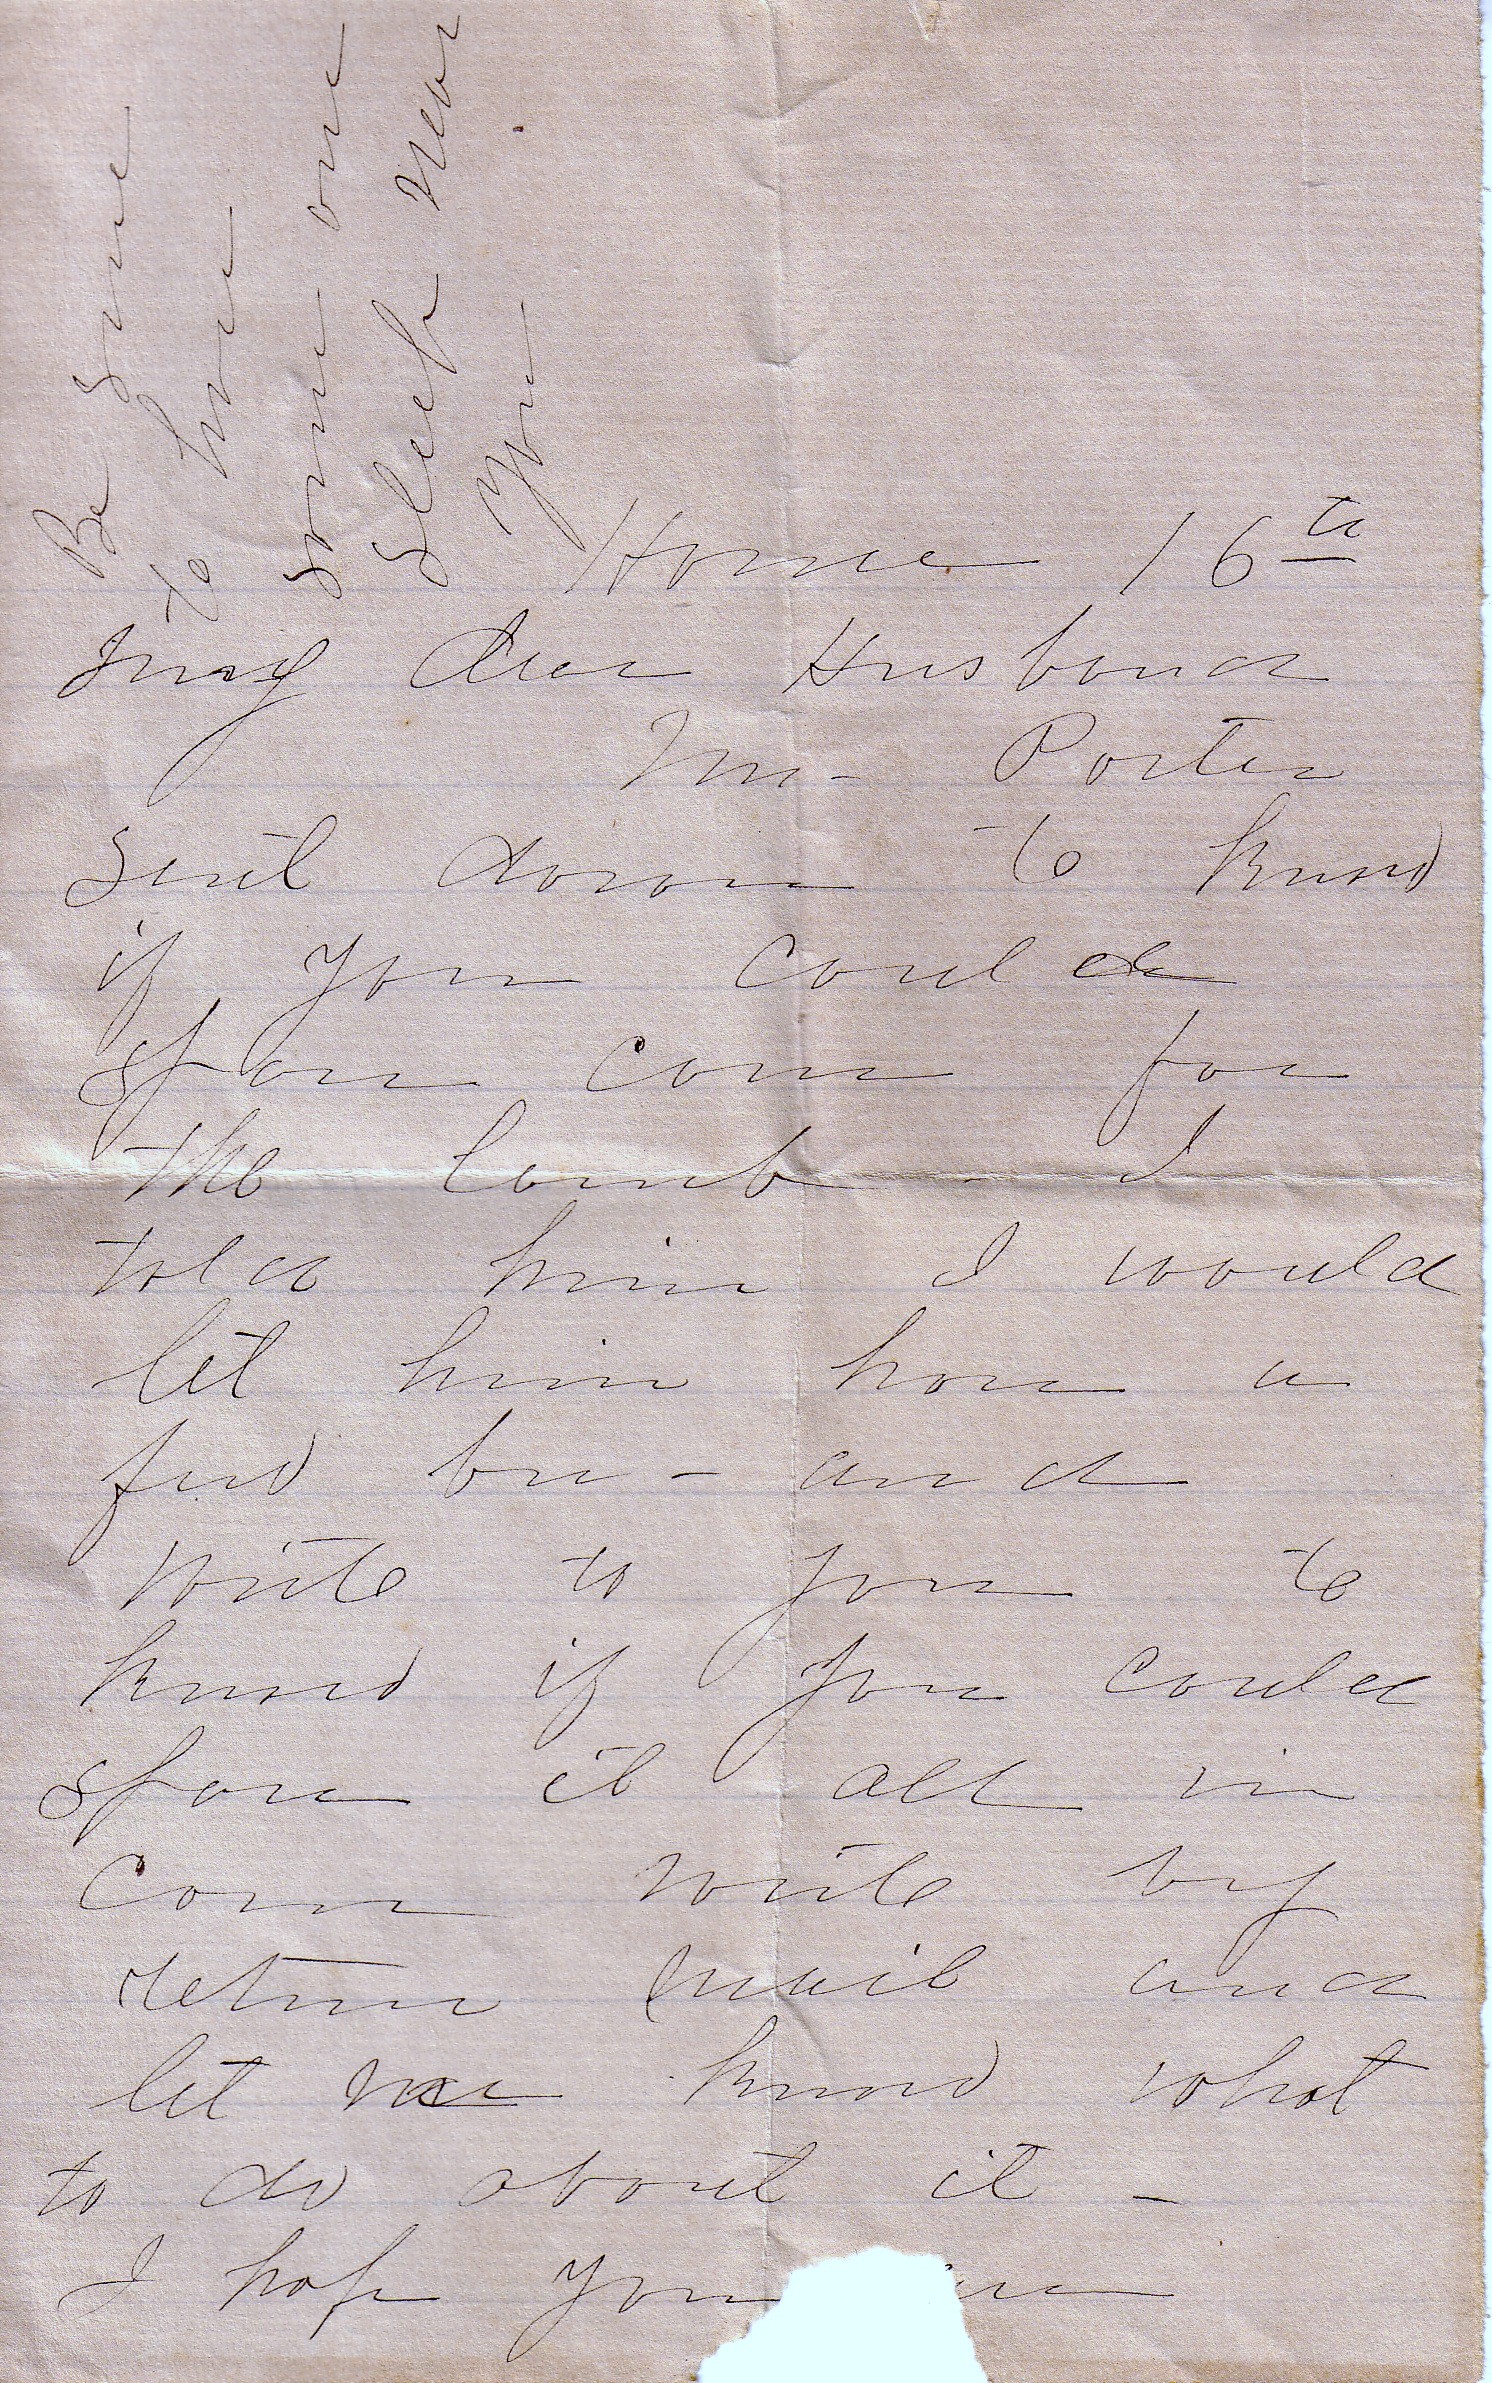 Be sure
to have
some one
sleep near
you
Home 16th
My dear Husband
Mr - Porter
sent down to know
if you could
spare corn for
the lamb - I
told him I would
let him have a
few bu - and
write to you to
know if you could
spare it all in
corn write by
return mail and
let me know what
to do about it -
I hope you